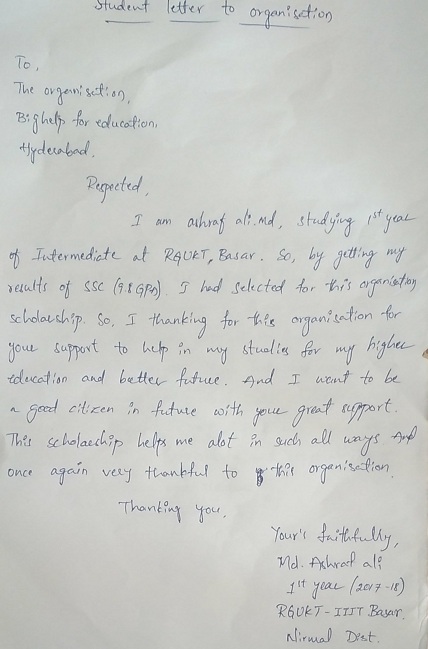 Student letter to organisation
To,
The organisation,
Bighelp for education,
Hyderabad.
Respected,
I am ashraf ali.md, studying 1st year
of Intermediate at RGUKT, Basar. So, by getting my
results of SSC (9.8 GPA). I had selected for this organisation
scholarship. So, I thanking for this organisation for
your support to help in my studies for my higher
education and better future. And I want to be
a good citizen in future with your great support.
This scholarship helps me alot in such all ways And
once again very thankful to this organisation.
Thanking you.
Your's faithfully,
Md. Ashraf ali
1st year (2017-18)
RGUKT-IIIT Basar.
Nirmal Dist.